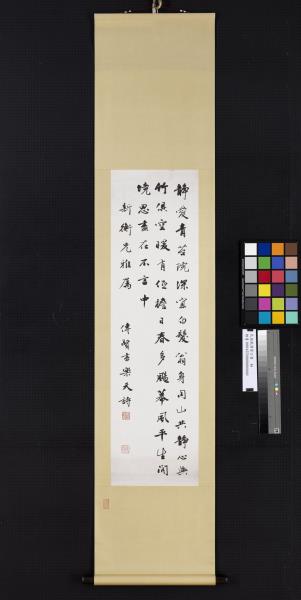 靜愛青苔院深宜白髮翁身閒山共靜心與
竹俱空暖有低檐日春多颺幕風平生閒
境思盡在不言中
新衡先雅屬
傅賢書樂天詩